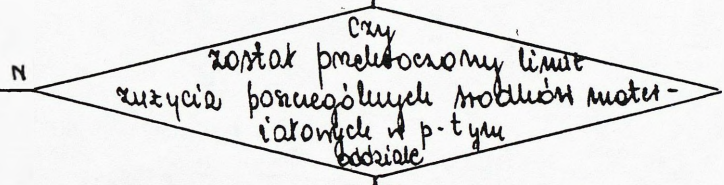 Czy
został przekroczony limit
N
zużycia poszczególnych środków mater-
iałowych w p-tym
oddziale